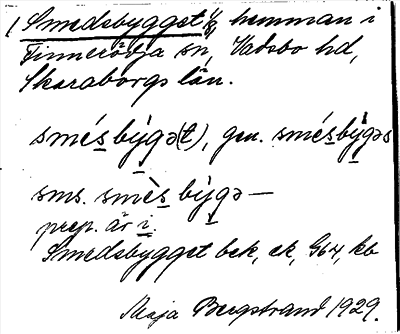 1 Smedsbygget 1/8 hemman i
Finnerödja sn, Vadsbo hd,
Skaraborgs län.
smésbýgə(t), gen. smésbýgəs
sms. smèsbýgə—
prep. är i.
Smedsbygget bek, ek, Geok, kb
Maja Bergstrand 1929.